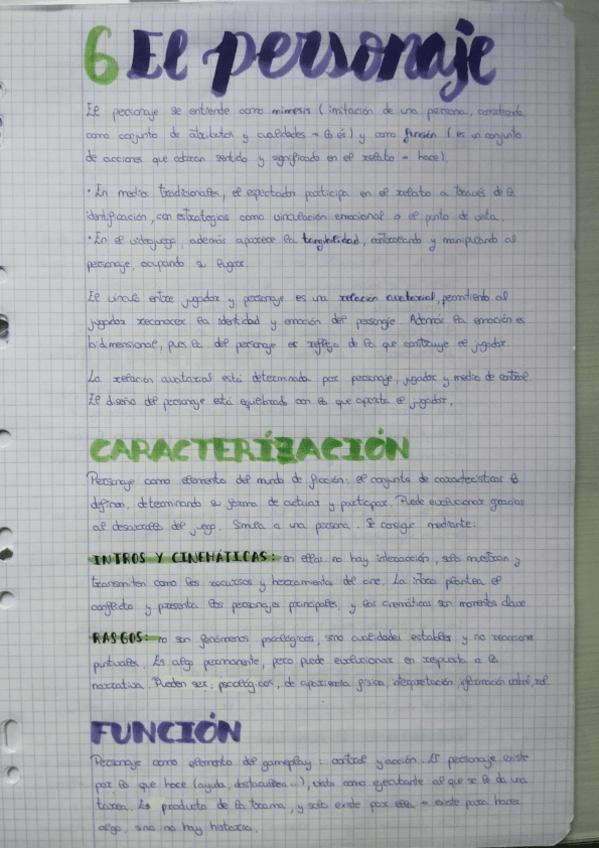 6 El personaje
El personaje se entiende como mímesis (imitación de una persona, construida
como conjunto de atributos y cualidades → lo es) y como función (es un conjunto
de acciones que adquieren sentido y significado en el relato → hace).
• En medios tradicionales, el espectador participa en el relato a través de la
identificación, con estrategias como vinculación emocional o el punto de vista.
• En el videojuego, además aparece la tangibilidad, controlando y manipulando al
personaje, ocupando su lugar.
El vínculo entre jugador y personaje es una relación avatarial, permitiendo al
jugador reconocer la identidad y emoción del personaje. Además la emoción es
bidimensional, pues la del personaje es reflejo de lo que construye el jugador.
La relación avatarial está determinada por personaje, jugador y medio de control.
El diseño del personaje está equilibrado con lo que aporta el jugador.
CARACTERÍZACIÓN
Personaje como elemento del mundo de ficción: el conjunto de características lo
definen, determinando su forma de actuar y participar. Puede evolucionar gracias
al desarrollo del juego. Simula a una persona. Se consigue mediante:
INTROS Y CINEMÁTICAS: en ellas no hay interacción, solo muestran y
transmiten como los recursos y herramientas del cine. La intro plantea el
conflicto y presenta los personajes principales, y las cinemáticas son momentos clave
RASGOS: no son fenómenos psicológicos, sino cualidades estables y no reacciones
puntuales. Es algo permanente, pero puede evolucionar en respuesta a la
narrativa. Pueden ser: psicológicos, de apariencia física, interpretación, información
FUNCIÓN
Personaje como elemento del gameplay: control y acción. El personaje existe
por lo que hace (ayuda, obstaculiza...), visto como ejecutante al que se le da una
tarea. Es producto de la trama, y solo existe por ella → existe para hacer
algo, sino no hay historia.